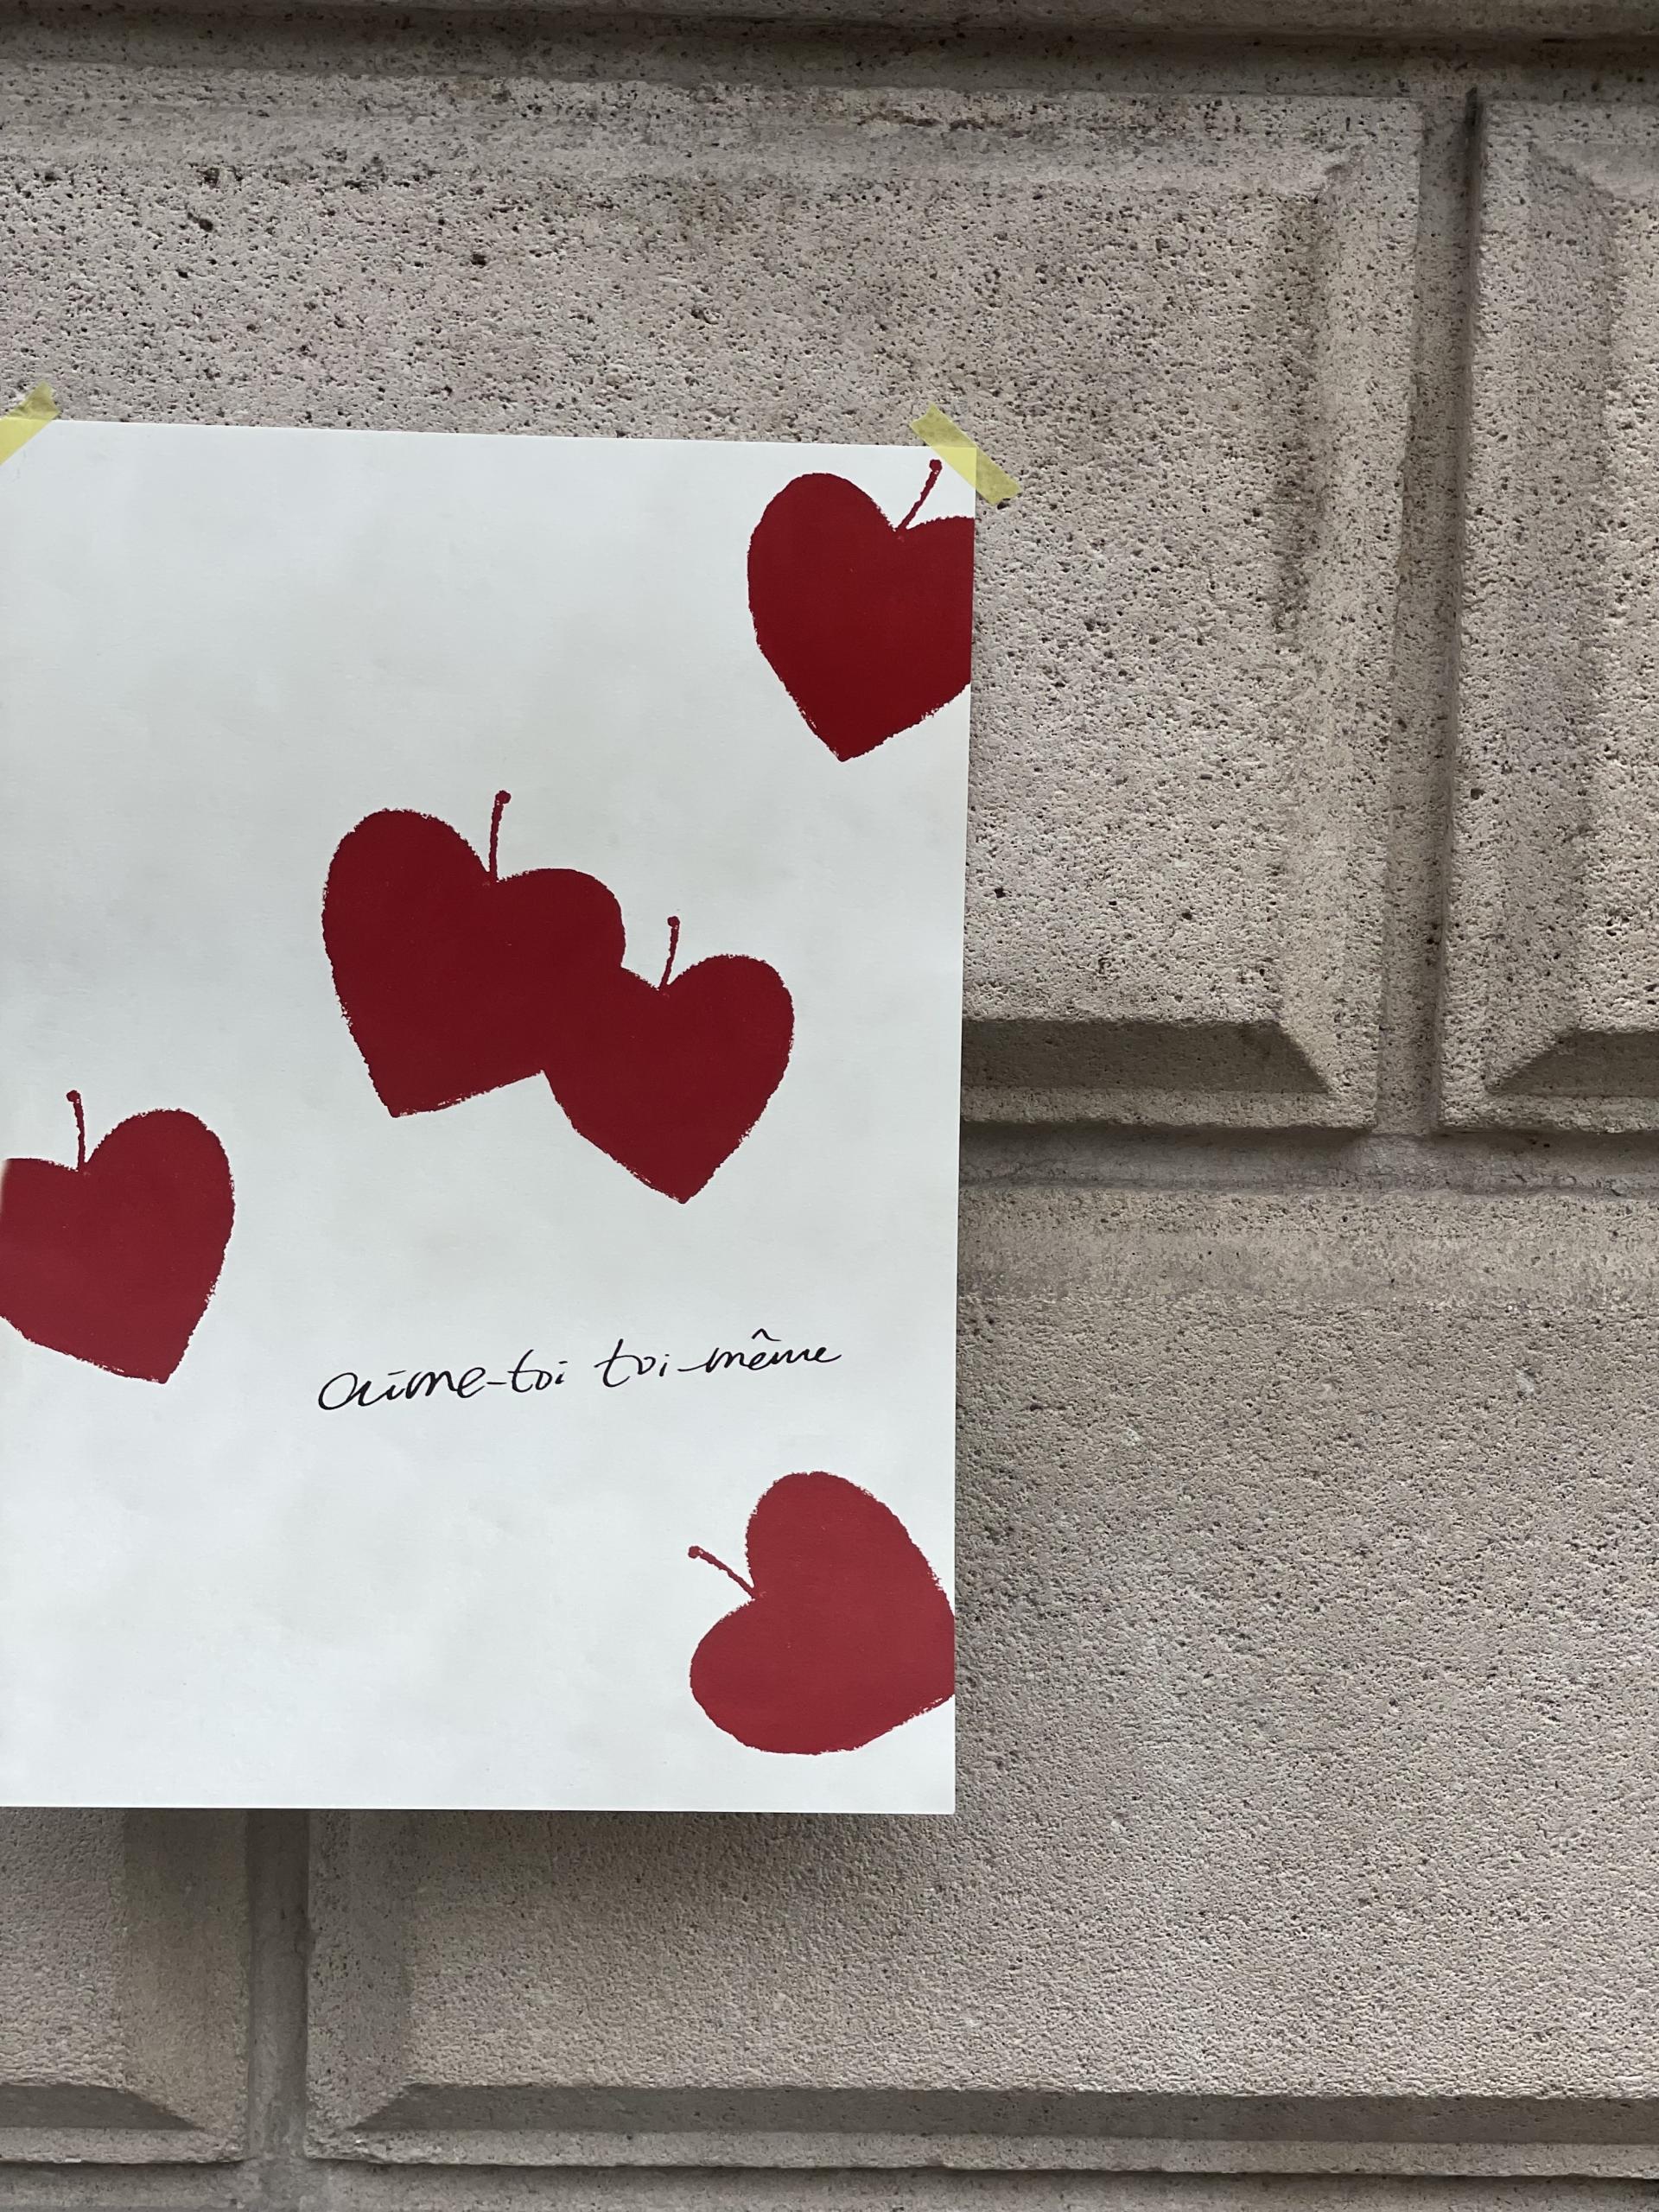 aime-toi toi-même